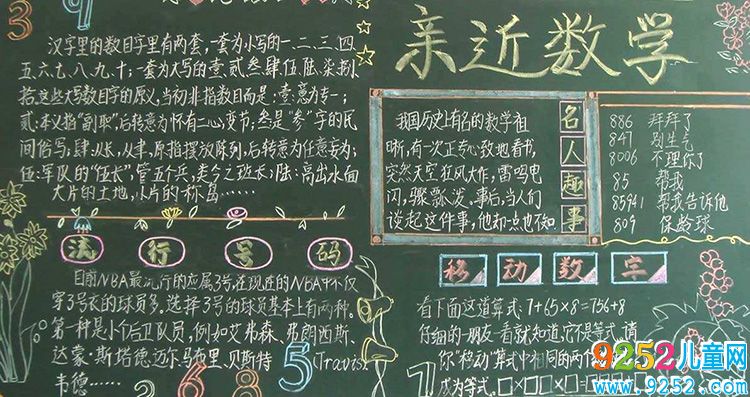 汉字里的数目字里有两套,一套为小写的一、二、三、四
五、六、七、八、九、十;一套为大写的壹、贰、叁、肆、伍、陆、柒、捌、
拾。这些大写数目字的原义,当初非指数目而是:壹:意为专一;
贰:本义指“副职”,后转意为怀有二心,变节,叁是“参”字的民
间俗写,肆:从长,从聿,原指摆放陈列,后转意为任意妄为;
伍:军队的“伍长”管五个兵,类今之班长;陆:高出水面
大片的土地,小片的称岛……
流 行 号 码
目前NBA最流行的应属3号,在现在的NBA中不仅
穿3号衣的球员多。选择3号的球员基本上有两种。
第一种是小个后卫队员,例如艾弗森、弗朗西斯、
达蒙·斯塔德迈尔、马布里、贝斯特 Travis
韦德……
2 6 8 5
亲近数学
我国历史上有名的数学祖
有一次正专心致地看书,
突然天空狂风大作,雷鸣电
闪,骤飘泼。事后,当人们
谈起这件事,他却一点也不知
名人趣事
886 拜拜了
847 别生气
8006 不理你了
85 帮我
85941 帮我告诉他
809 保龄球
移 动 数 字
看下面这道算式:7+65×8=756+8
仔细的朋友一看就知道,它不是等式,请
你“移动”算式中相同的两个
成为等式。□×□=□×□
9252儿童网
www.9252.com